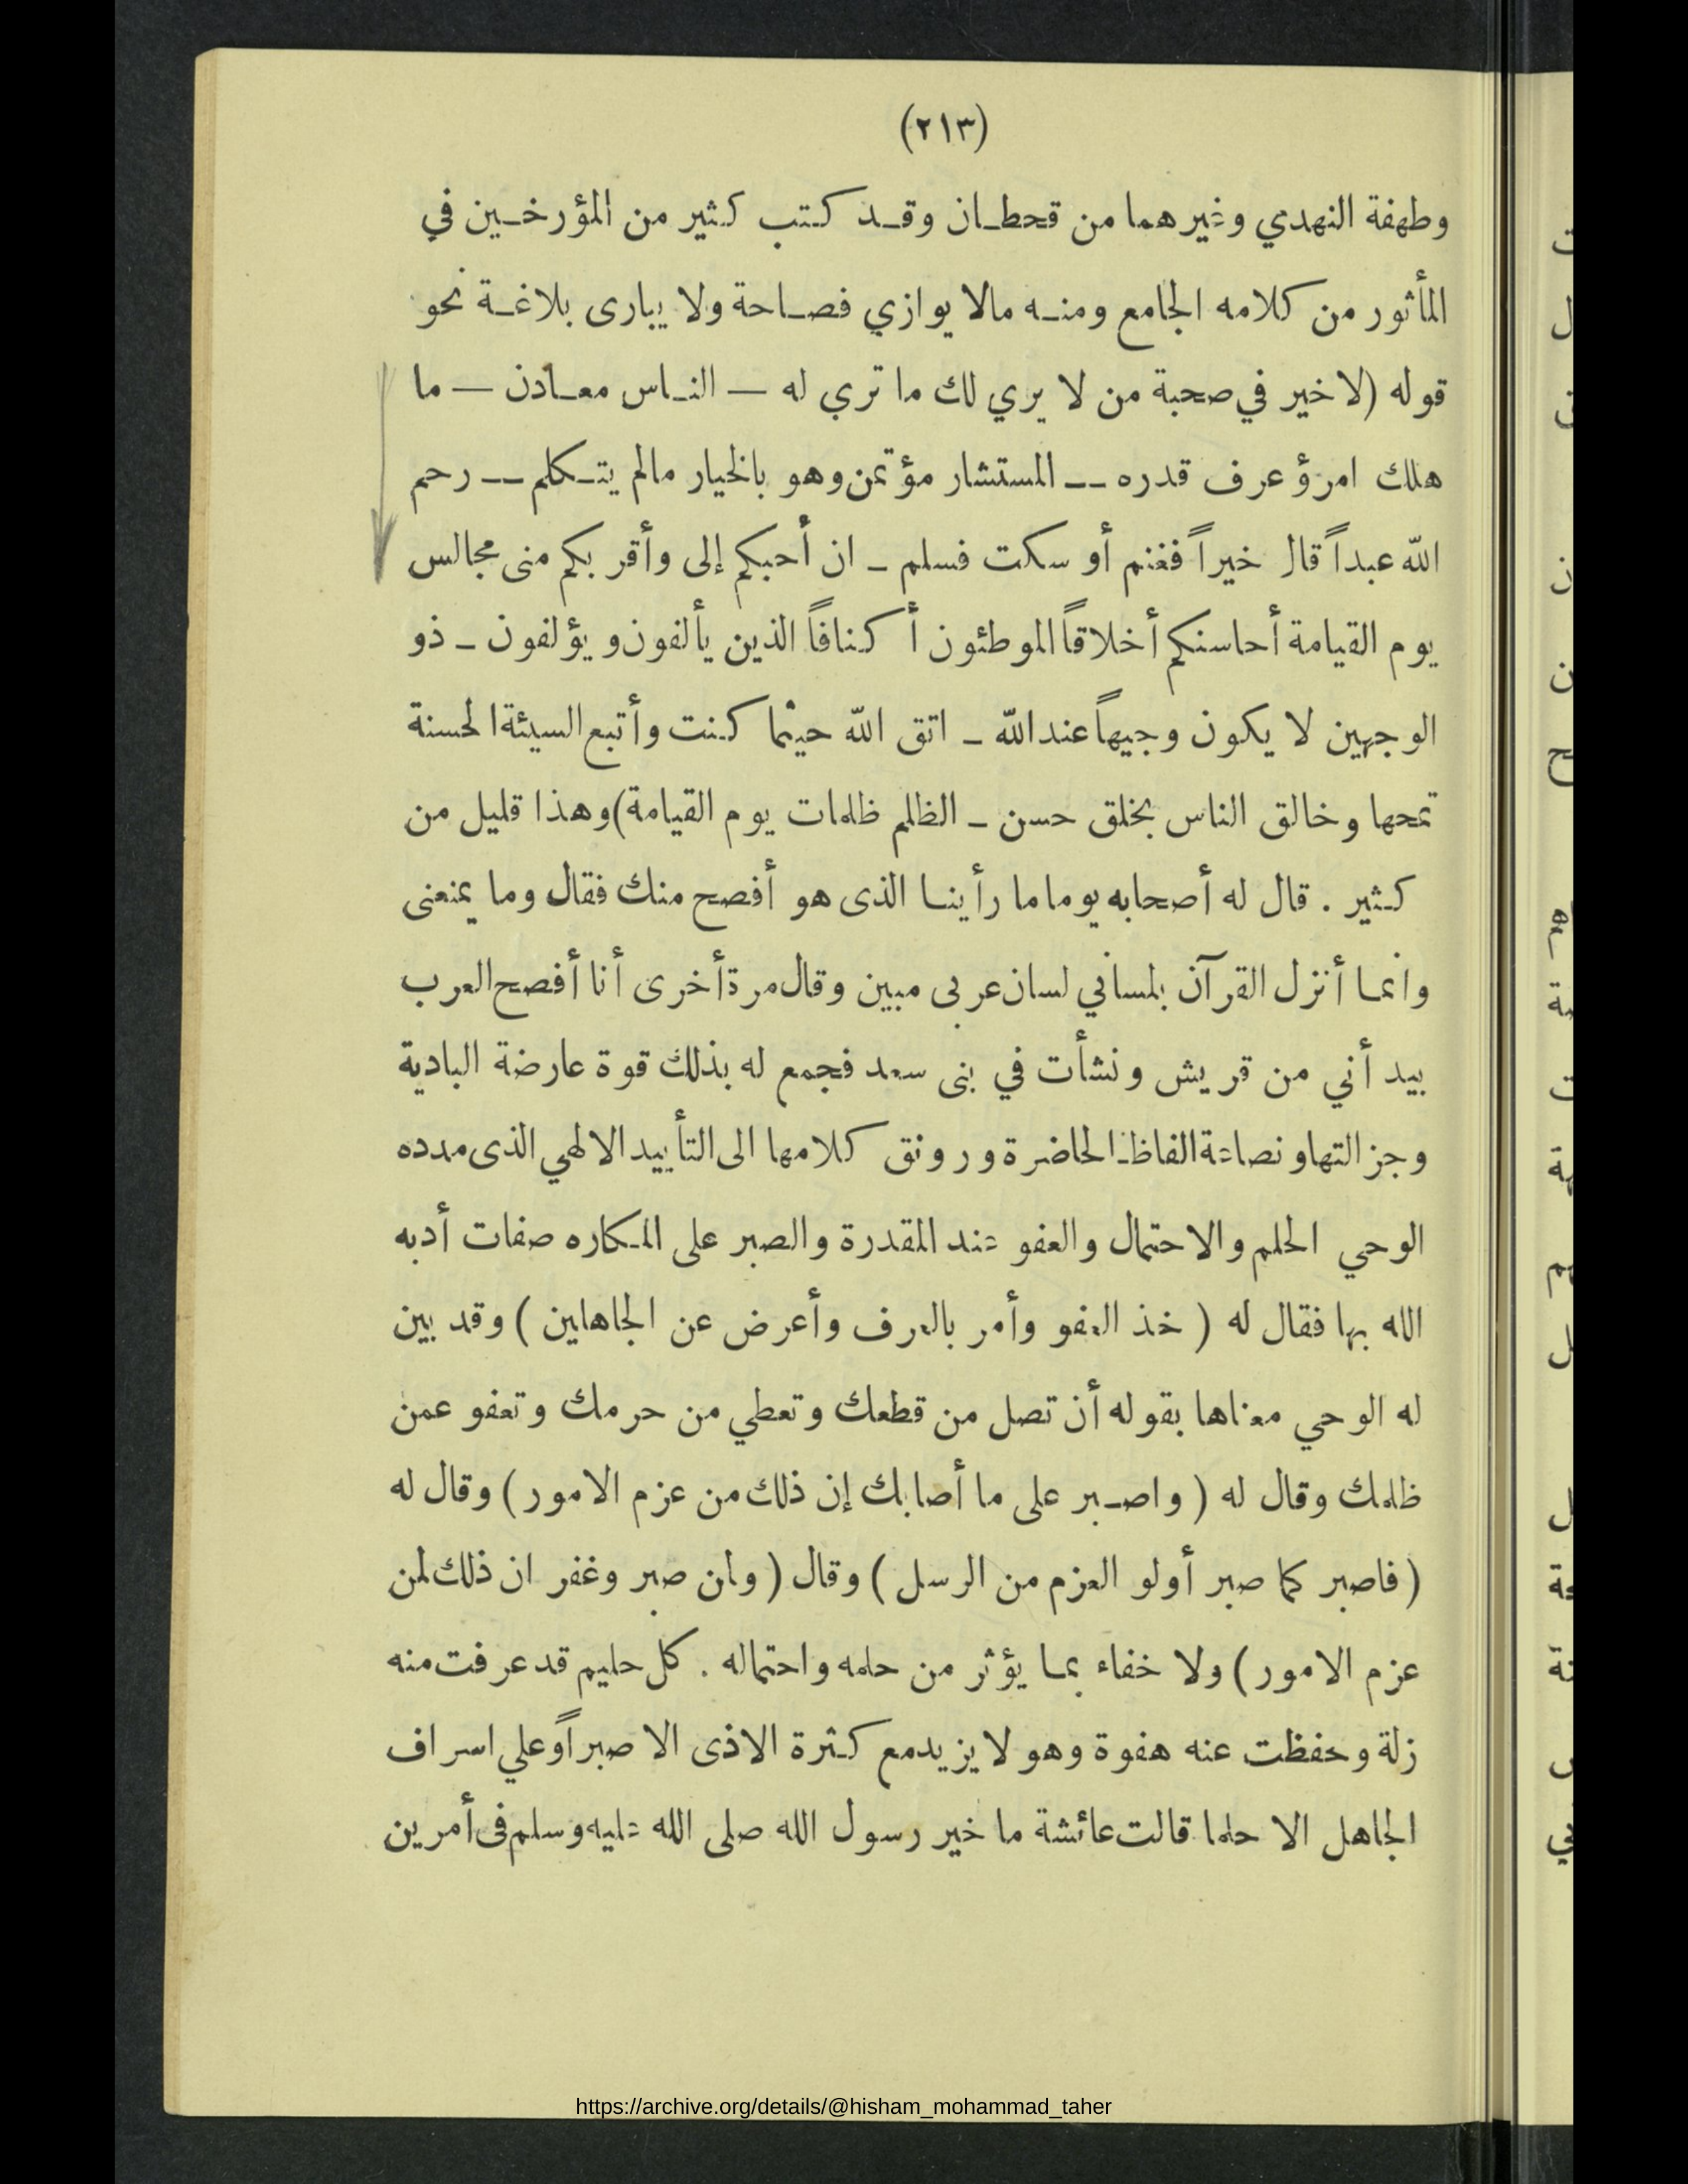 (٢١٣)
وطهفة النهدي وغيرهما من قحطان وقد كتب كثير من المؤرخين في
المأثور من كلامه الجامع ومنه مالا يوازي فصاحة ولا يبارى بلاغة نحو
قوله (لا خير في صحبة من لا يري لك ما تري له — الناس معادن — ما
هلك امرؤ عرف قدره -- المستشار مؤتمن وهو بالخيار مالم يتكلم -- رحم
الله عبداً قال خيراً فغنم أو سكت فسلم - ان أحبكم إلى وأقربكم منى مجالس
يوم القيامة أحاسنكم أخلاقاً الموطئون أكنافاً الذين يألفون ويؤلفون - ذو
الوجهين لا يكون وجيهاً عند الله - اتق الله حيثما كنت وأتبع السيئة الحسنة
تمحها وخالق الناس بخلق حسن - الظلم ظلمات يوم القيامة) وهذا قليل من
كثير . قال له أصحابه يوما ما رأينا الذى هو أفصح منك فقال وما يمنعنى
وانما أنزل القرآن بلساني لسان عربى مبين وقال مرة أخرى أنا أفصح العرب
بيد أني من قريش ونشأت في بنى سعد فجمع له بذلك قوة عارضة البادية
وجزالتها ونصاعة الفاظ الحاضرة ورونق كلامها الى التأييد الالهي الذى مدده
الوحي الحلم والاحتمال والعفو عند المقدرة والصبر على المكاره صفات أدبه
الله بها فقال له ( خذ العفو وأمر بالعرف وأعرض عن الجاهلين ) وقد بين
له الوحي معناها بقوله أن تصل من قطعك وتعطي من حرمك وتعفو عمن
ظلمك وقال له ( واصبر على ما أصابك إن ذلك من عزم الامور ) وقال له
( فاصبر كما صبر أولو العزم من الرسل ) وقال ( ولمن صبر وغفر ان ذلك لمن
عزم الامور ) ولا خفاء بما يؤثر من حلمه واحتماله . كل حليم قد عرفت منه
زلة وحفظت عنه هفوة وهو لا يزيد مع كثرة الاذى الا صبراً وعلي اسراف
الجاهل الا حلما قالت عائشة ما خير رسول الله صلى الله عليه وسلم فى أمرين
https://archive.org/details/@hisham_mohammad_taher